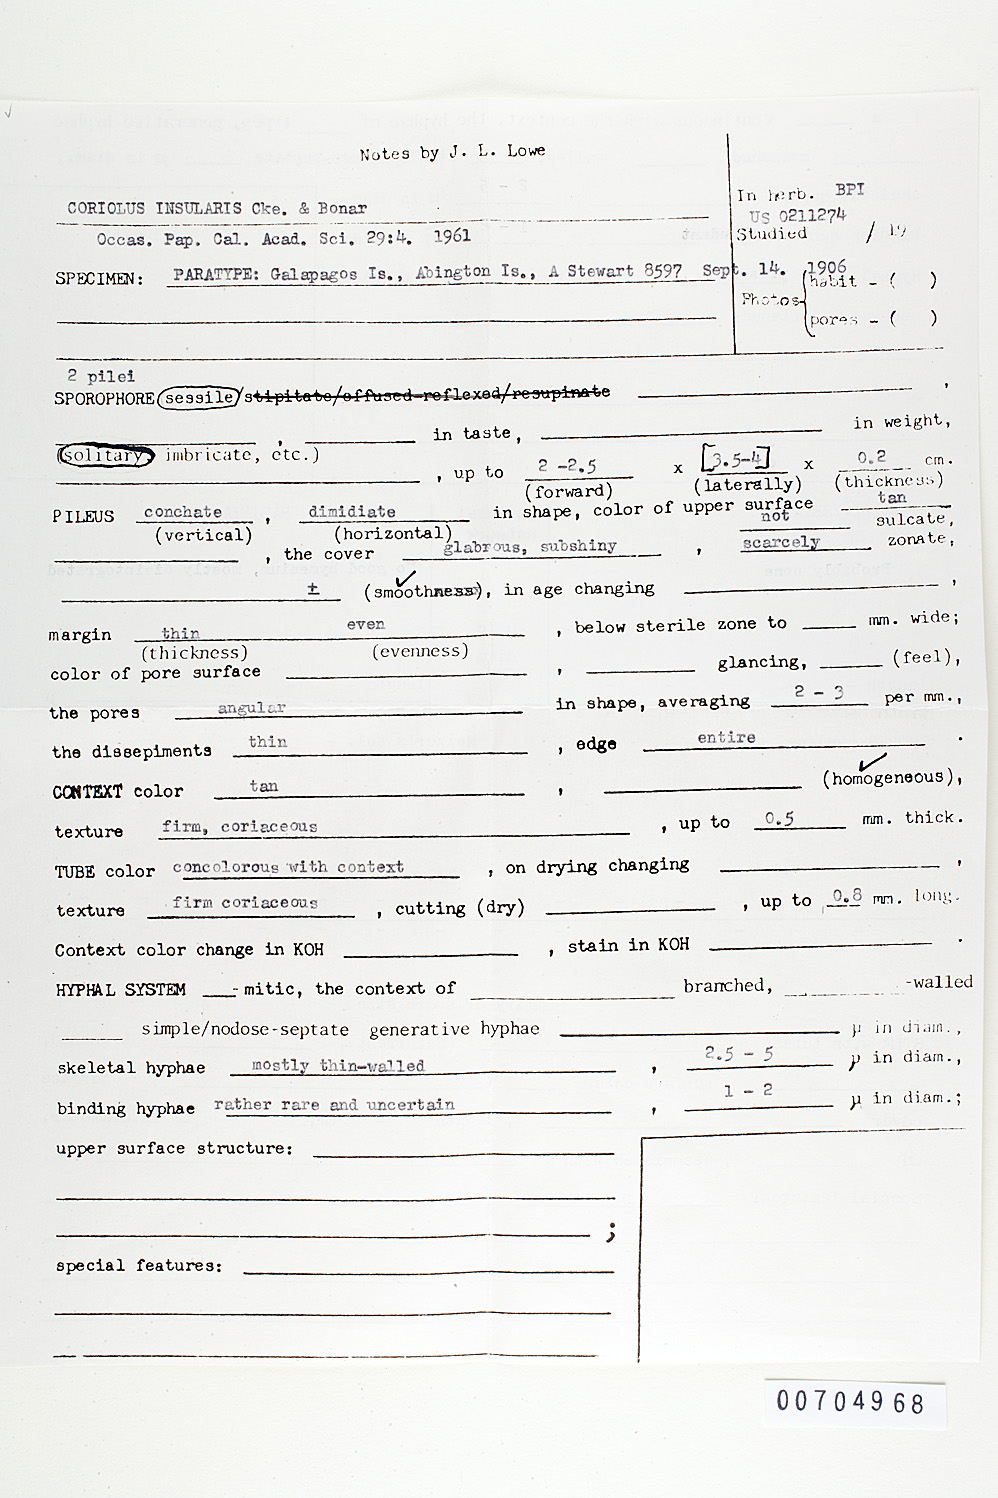 Notes by J. L. Lowe
In herb. BPI
CORIOLUS INSULARIS Cke. & Bonar
US 0211274
Occas. Pap. Cal. Acad. Sci. 29:4. 1961
Studied / 19
SPECIMEN: PARATYPE: Galapagos Is., Abington Is., A Stewart 8597 Sept. 14. 1906
habit - ( )
Photos
pores - ( )
2 pilei
SPOROPHORE (sessile)/stipitate/effused-reflexed/resupinate ,
, in taste, in weight,
(solitary, imbricate, etc.)
, up to 2 -2.5 x [3.5-4] x 0.2 cm.
(forward) (laterally) (thickness)
PILEUS conchate , dimidiate in shape, color of upper surface tan
(vertical) (horizontal) not sulcate,
, the cover glabrous, subshiny , scarcely zonate,
± (smoothness), in age changing ,
margin thin even , below sterile zone to mm. wide;
(thickness) (evenness)
color of pore surface , glancing, (feel),
the pores angular in shape, averaging 2 - 3 per mm.,
the dissepiments thin , edge entire .
CONTEXT color tan , (homogeneous),
texture firm, coriaceous , up to 0.5 mm. thick.
TUBE color concolorous with context , on drying changing ,
texture firm coriaceous , cutting (dry) , up to 0.8 mm. long.
Context color change in KOH , stain in KOH .
HYPHAL SYSTEM -mitic, the context of branched, -walled
simple/nodose-septate generative hyphae µ in diam.,
skeletal hyphae mostly thin-walled , 2.5 - 5 µ in diam.,
binding hyphae rather rare and uncertain , 1 - 2 µ in diam.;
upper surface structure:
;
special features:
00704968